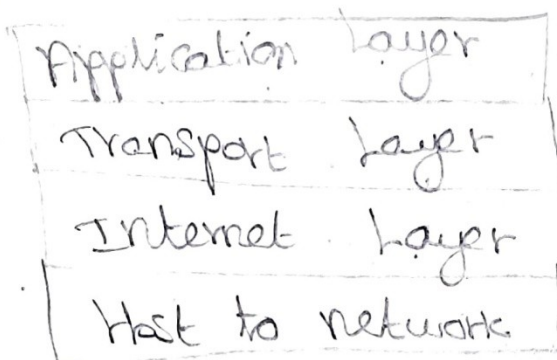 Application Layer
Transport Layer
Internet Layer
Host to network